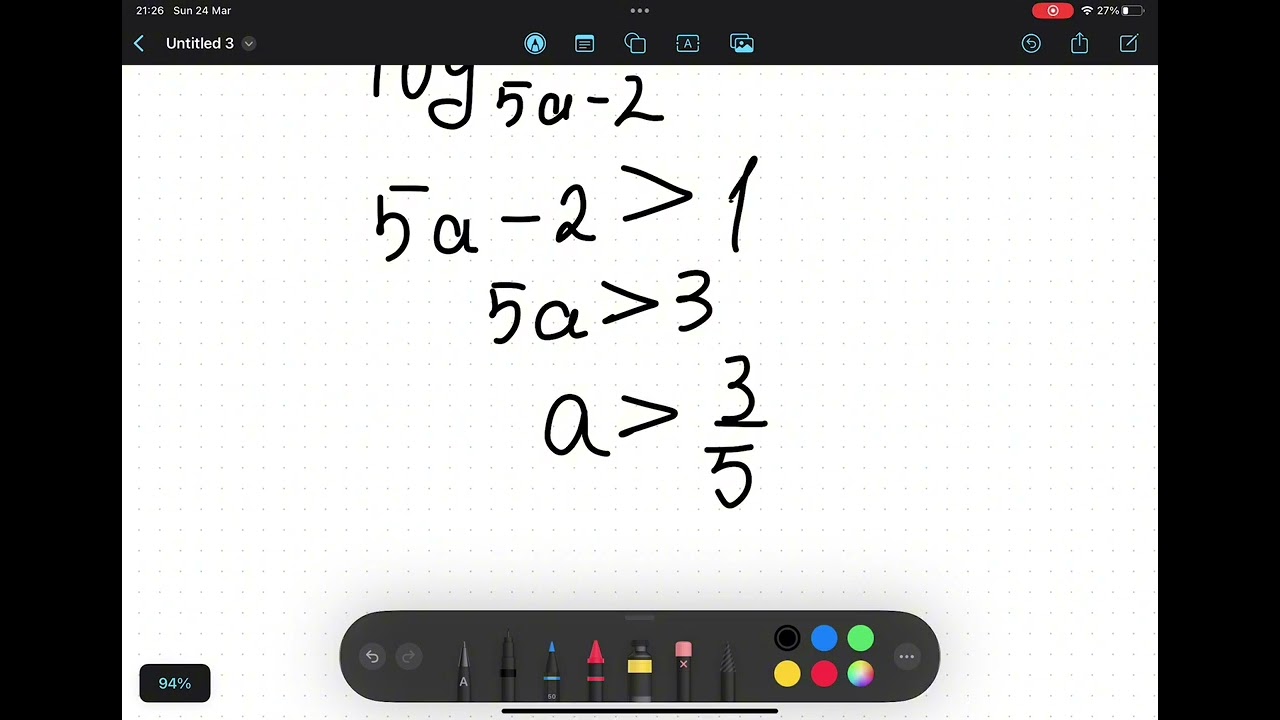 21:26 Sun 24 Mar
27%
Untitled 3
log 5a-2
5a-2>1
5a>3
a>3/5
A
50
94%